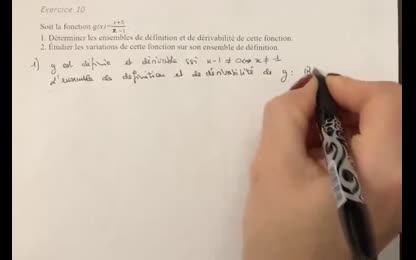 Exercice 10
Soit la fonction g(x)=x+2/x-1
1. Déterminer les ensembles de définition et de dérivabilité de cette fonction.
2. Étudier les variations de cette fonction sur son ensemble de définition.
1) g est définie et dérivable ssi x-1 ≠ 0 ⇔ x ≠ 1
L'ensemble de définition et de dérivabilité de g : R